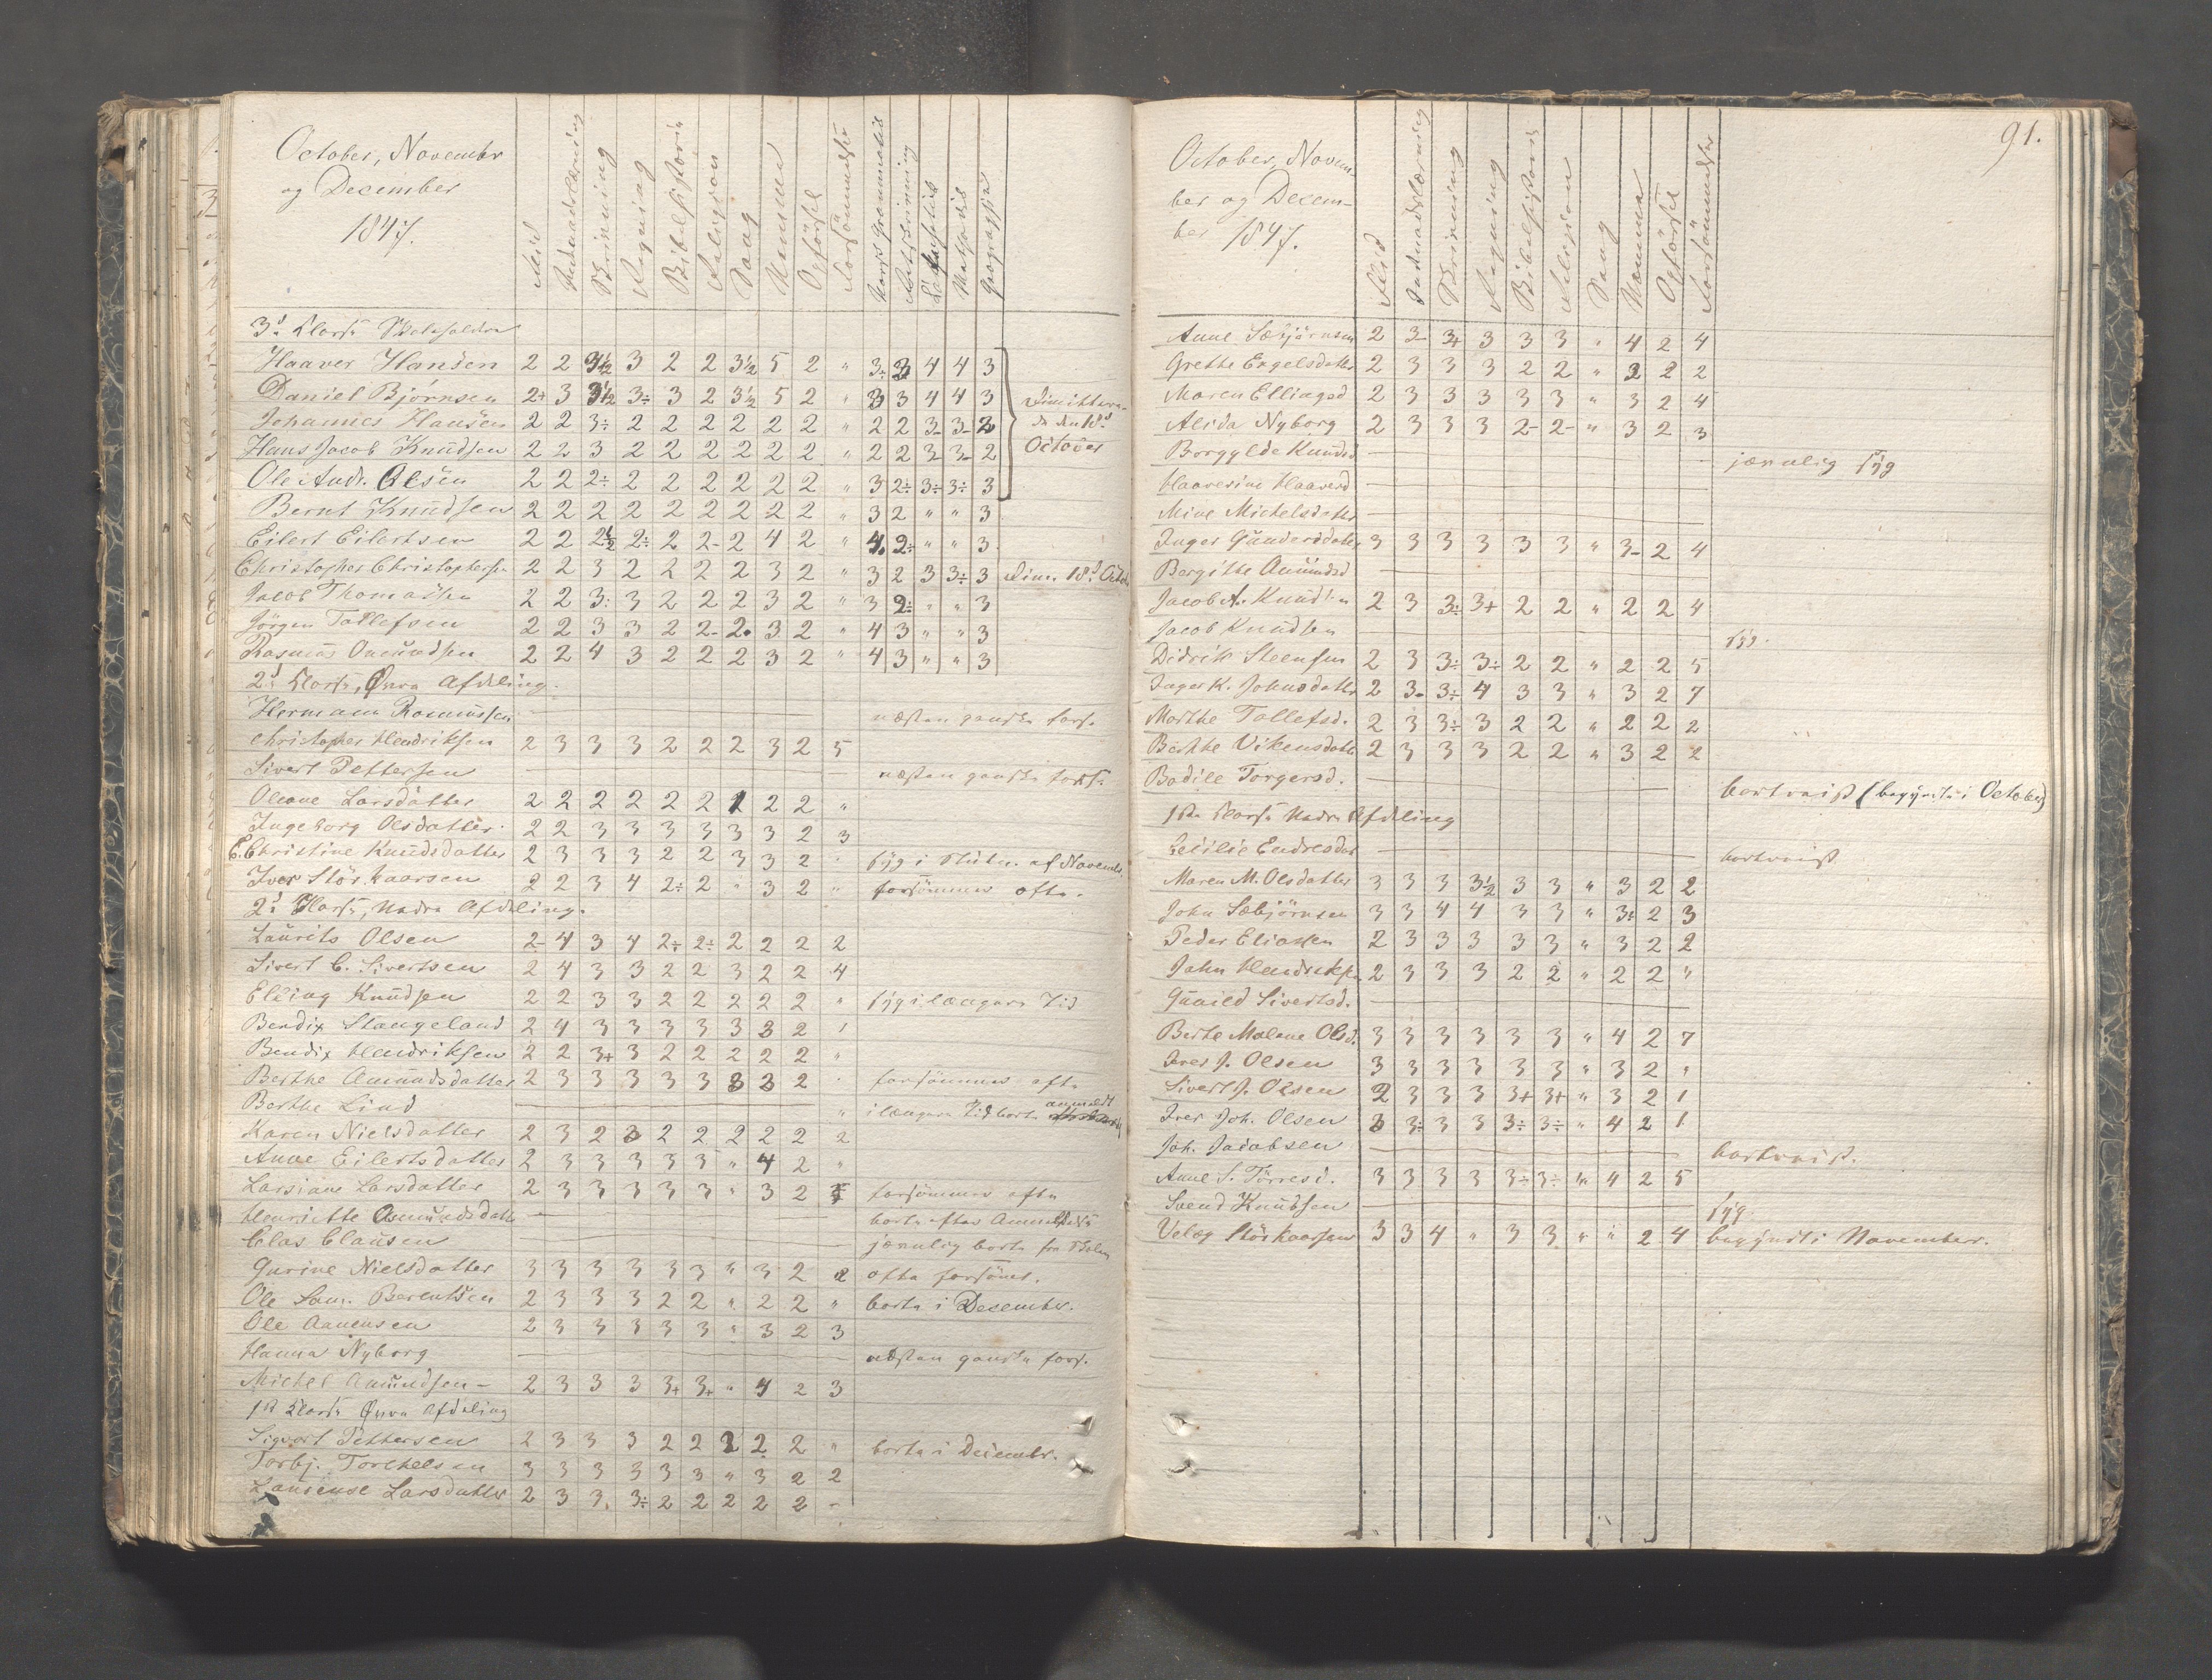 October, Novembr
og December
1847.
Flid
Indenadslæsning
Skrivning
Regning
Bibelhistorie
Religion
Sang
Nummer
Opførsel
Forsømmelser
Norsk Grammatik
Retskrivning
Geographie
3d Klasse
Haaver Hansen 2 2 3½ 3 2 2 3½ 5 2 " 3÷ 3 4 4 3
Daniel Bjørnsen 2+ 3 3½ 3÷ 3 2 3½ 5 2 " 3 3 4 4 3 Dimittere-
Johannes Hansen 2 2 3÷ 2 2 2 2 2 2 " 2 2 3- 3- 2 de den 18d
Hans Jacob Knudsen 2 2 3 2 2 2 2 2 2 " 2 2 3- 3- 2 October
Ole Andr. Olsen 2 2 2÷ 2 2 2 2 2 2 " 3 2÷ 3÷ 3÷ 3
Bernt Knudsen 2 2 2 2 2 2 2 2 2 " 3 2 " " 3
Eilert Eilertsen 2 2 2½ 2÷ 2 2- 2 4 2 " 4 2÷ " " 3
Christopher Christophersen 2 2 3 2 2 2 2 3 2 " 3 2 3 3÷ 3 Dim. 18d Octob
Jacob Thomassen 2 2 3÷ 3 2 2 2 3 2 " 3 2÷ " " 3
Jörgen Tollefsen 2 2 3 3 2 2- 2 3 2 " 4 3 " " 3
Rasmus Omundsen 2 2 4 3 2 2 2 3 2 " 4 3 " " 3
2d Klasse, Øvre Afdeling.
Hermann Rasmussen næsten ganske fors.
Christopher Hendriksen 2 3 3 3 2 2 2 3 2 5
Sivert Pettersen næsten ganske fors.
Oleane Larsdatter 2 2 2 2 2 2 1 2 2 "
Ingeborg Olsdatter 2 2 3 3 3 3 3 3 2 3
E. Christine Knudsdatter 2 3 3 3 2 2 3 3 2 " syg i Slutn. af Novembr.
Iver Stör. Kaarsen 2 2 3 4 2÷ 2 " 3 2 " forsömmer ofte.
2d Klasse, Nedre Afdeling.
Laurits Olsen 2- 4 3 4 2÷ 2÷ 2 2 2 2
Sivert C. Sivertsen 2 4 3 3 2 2 3 2 2 4
Elling Knudsen 2 2 3 3 2 2 2 2 2 " syg i længere Tid
Bendix Stangeland 2 4 3 3 3 3 3 3 2 1
Bendix Hendriksen 2 2 3+ 3 2 2 2 2 2 "
Berthe Amundsdatter 2 3 3 3 3 3 3 3 2 " forsömmer ofte
Berthe Lind " i længere Tid borte anmeldt
Karen Nielsdatter 2 3 2 3 2 2 2 2 2 2
Anne Eilertsdatter 2 3 3 3 3 3 " 4 2 "
Larsiane Larsdatter 2 3 3 3 3 3 " 3 2 forsömmer ofte
Henriette Asmundsdatt borte efter Anmeldelse
Clas Clausen jævnlig borte fra Skolen
Gurine Nielsdatter 3 3 3 3 3 3 " 3 2 2 ofte forsömt.
Ole Sam. Berentsen 2 3 3 3 2 2 " 2 2 " borte i Desember.
Ole Aanensen 2 3 3 3 3 3 " 3 2 3
Hanna Nyborg næsten ganske fors.
Michel Amundsen 2 3 3 3 3+ 3+ " 4 2 3
1ste Klasse Øvre Afdeling
Sigvart Pettersen 2 3 3 3 2 2 2 2 2 " borte i Decembr.
Torbj. Torkelsen 3 3 3 3 3 3 " 3 2 2
Larsense Larsdatter 2 3 3. 3÷ 2 2 2 2 2 -
91.
October, Novem-
ber og Decem-
ber 1847.
Flid
Indenadslæsning
Skrivning
Regning
Bibelhistorie
Religion
Sang
Nummer
Opførsel
Forsömmelser
Anne Sæbjörnsen 2 3- 3+ 3 3 3 " 4 2 4
Grethe Engelsdatter 2 3 3 3 2 2 " 3 2 2
Maren Ellingsd 2 3 3 3 3 3 " 3 2 4
Alida Nyborg 2 3 3 3 2- 2- " 3 2 3
Borgylde Knudsd jævnlig syg
Haavesine Haaversd
Mine Michelsdatter
Inger Gundersdatter 3 3 3 3 3 3 " 3- 2 4
Bergithe Amundsd
Jacob A. Knudsen 2 3 3÷ 3+ 2 2 " 2 2 4
Jacob Knudsen syg.
Didrik Steensen 2 3 3÷ 3÷ 2 2 " 2 2 5
Inger K. Johnsdatter 2 3- 3÷ 4 3 3 " 3 2 7
Marthe Tollefsd. 2 3 3÷ 3 2 2 " 2 2 2
Berthe Vikensdatte 2 3 3 3 2 2 " 3 2 2
Bodile Torgersd. bortreist (begyndte i October)
1ste Klasse Nedre Afdeling
Cecilie Endresdat bortreist
Maren M. Olsdatter 3 3 3 3½ 3 3 " 3 2 2
John Sæbjörnsen 3 3 4 4 3 3 " 3÷ 2 3
Peder Eliassen 2 3 3 3 3 3 " 3 2 2
John Hendriksen 2 3 3 3 2 2 " 2 2 "
Gunild Sivertsd.
Berte Malene Olsd. 3 3 3 3 3 3 " 4 2 7
Iver J. Olsen 3 3 3 3 3 3 " 3 2 "
Sivert J. Olsen 2 3 3 3 3+ 3+ " 3 2 1
Iver Joh. Olsen 3 3÷ 3 3 3÷ 3÷ " 4 2 1
Joh. Jacobsen bortreist.
Anne S. Törresd. 3 3 3 3 3÷ 3÷ " 4 2 5
Svend Knudsen syg.
Velæg Störkaarsen 3 3 4 " 3 3 " " 2 4 begyndt i November.